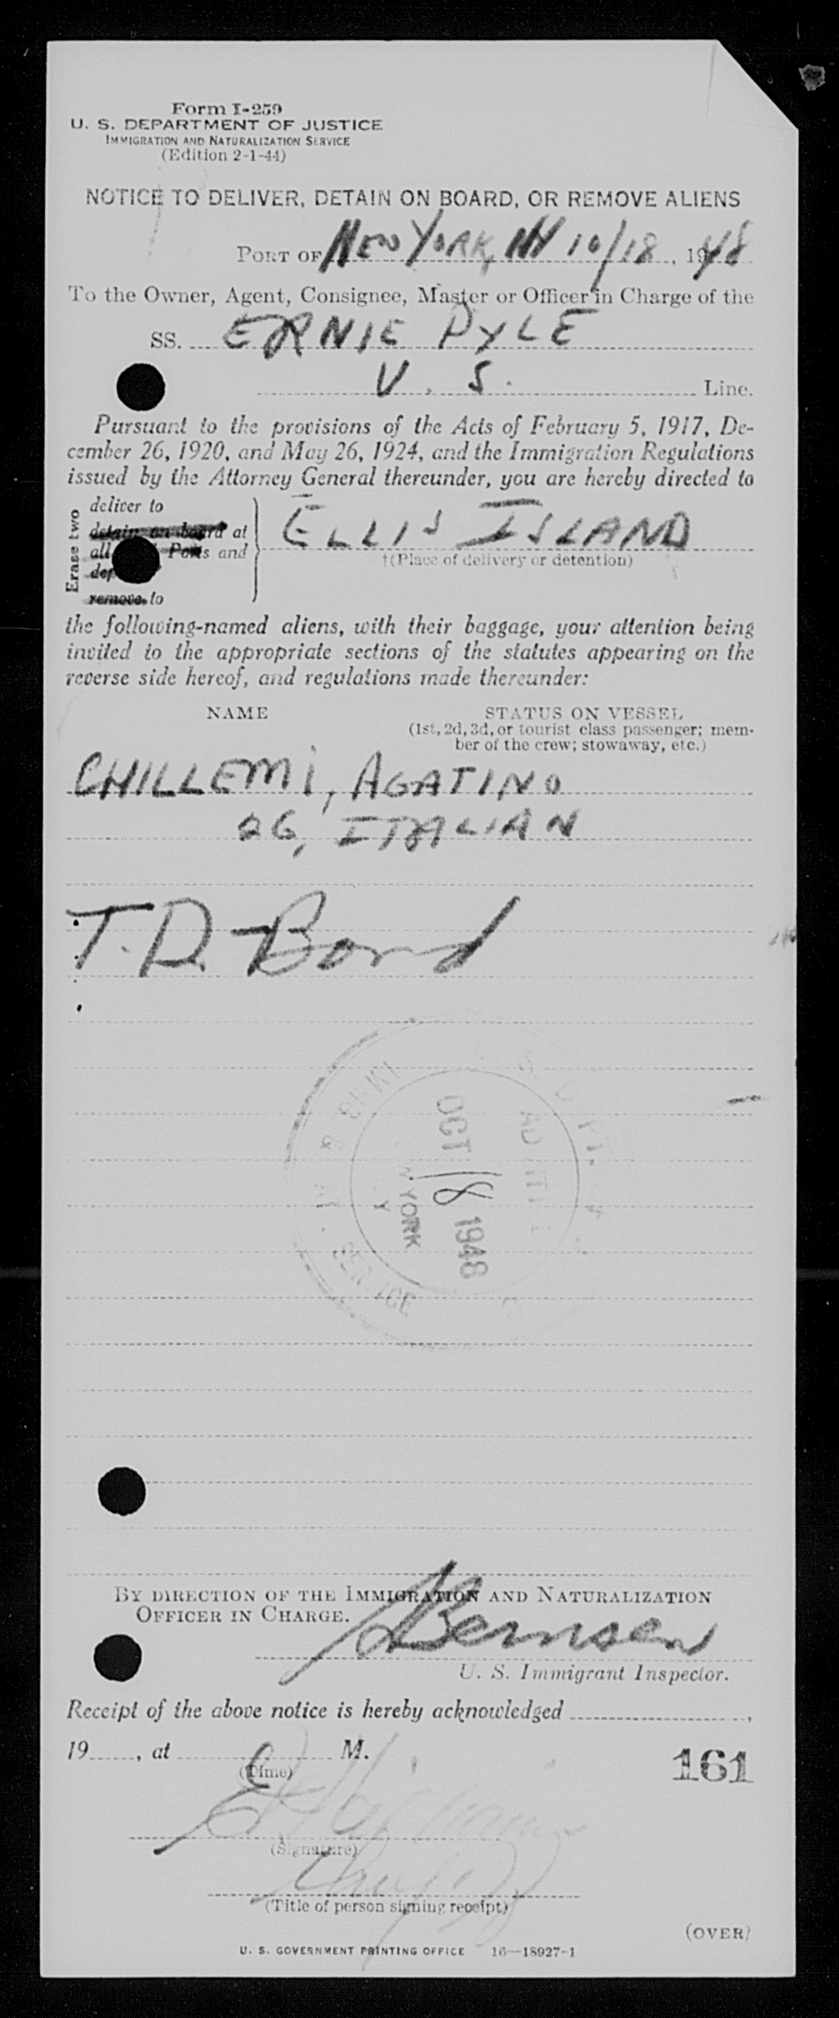 Form I-259
U. S. DEPARTMENT OF JUSTICE
IMMIGRATION AND NATURALIZATION SERVICE
(Edition 2-1-44)
NOTICE TO DELIVER, DETAIN ON BOARD, OR REMOVE ALIENS
PORT OF NEW YORK, NY 10/18, 1948
To the Owner, Agent, Consignee, Master or Officer in Charge of the
SS. ERNIE PYLE
U. S. Line.
Pursuant to the provisions of the Acts of February 5, 1917, De-
cember 26, 1920, and May 26, 1924, and the Immigration Regulations
issued by the Attorney General thereunder, you are hereby directed to
Erase two
deliver to
detain on board at
all Ports and
remove to
ELLIS ISLAND
†(Place of delivery or detention)
the following-named aliens, with their baggage, your attention being
invited to the appropriate sections of the statutes appearing on the
reverse side hereof, and regulations made thereunder:
NAME
STATUS ON VESSEL
(1st, 2d, 3d, or tourist class passenger; mem-
ber of the crew; stowaway, etc.)
CHILLEMI, AGATINO
26, ITALIAN
T.D. Bond
OCT 18 1948
YORK
SERVICE
BY DIRECTION OF THE IMMIGRATION AND NATURALIZATION
OFFICER IN CHARGE.
Bernsen
U. S. Immigrant Inspector.
Receipt of the above notice is hereby acknowledged
19 , at M.
(Time)
161
(Signature)
(Title of person signing receipt)
(OVER)
U. S. GOVERNMENT PRINTING OFFICE 16—18927-1